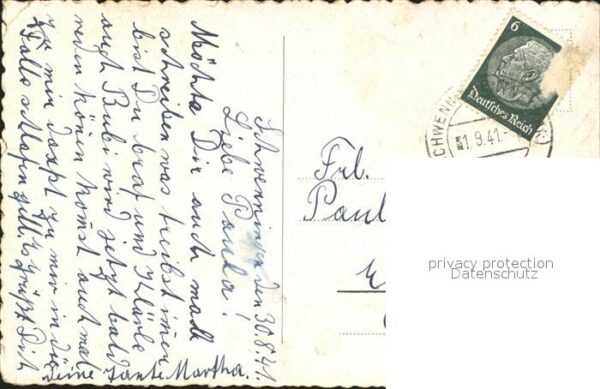 Schwenningen den 30.8.41.
Liebe Paula!
Möchte Dir auch mall
schreiben was treibst imer
bist Du braf und Klärle
auch Bubi wird jetzt bald
reden könen komst auch mal
zu mir daxst zu mir in die
Falle schlafen gell. Es grüßt Dich
deine Tante Martha.
Frl.
Paul
6
Deutsches Reich
SCHWENNIN
1.9.41.
privacy protection
Datenschutz